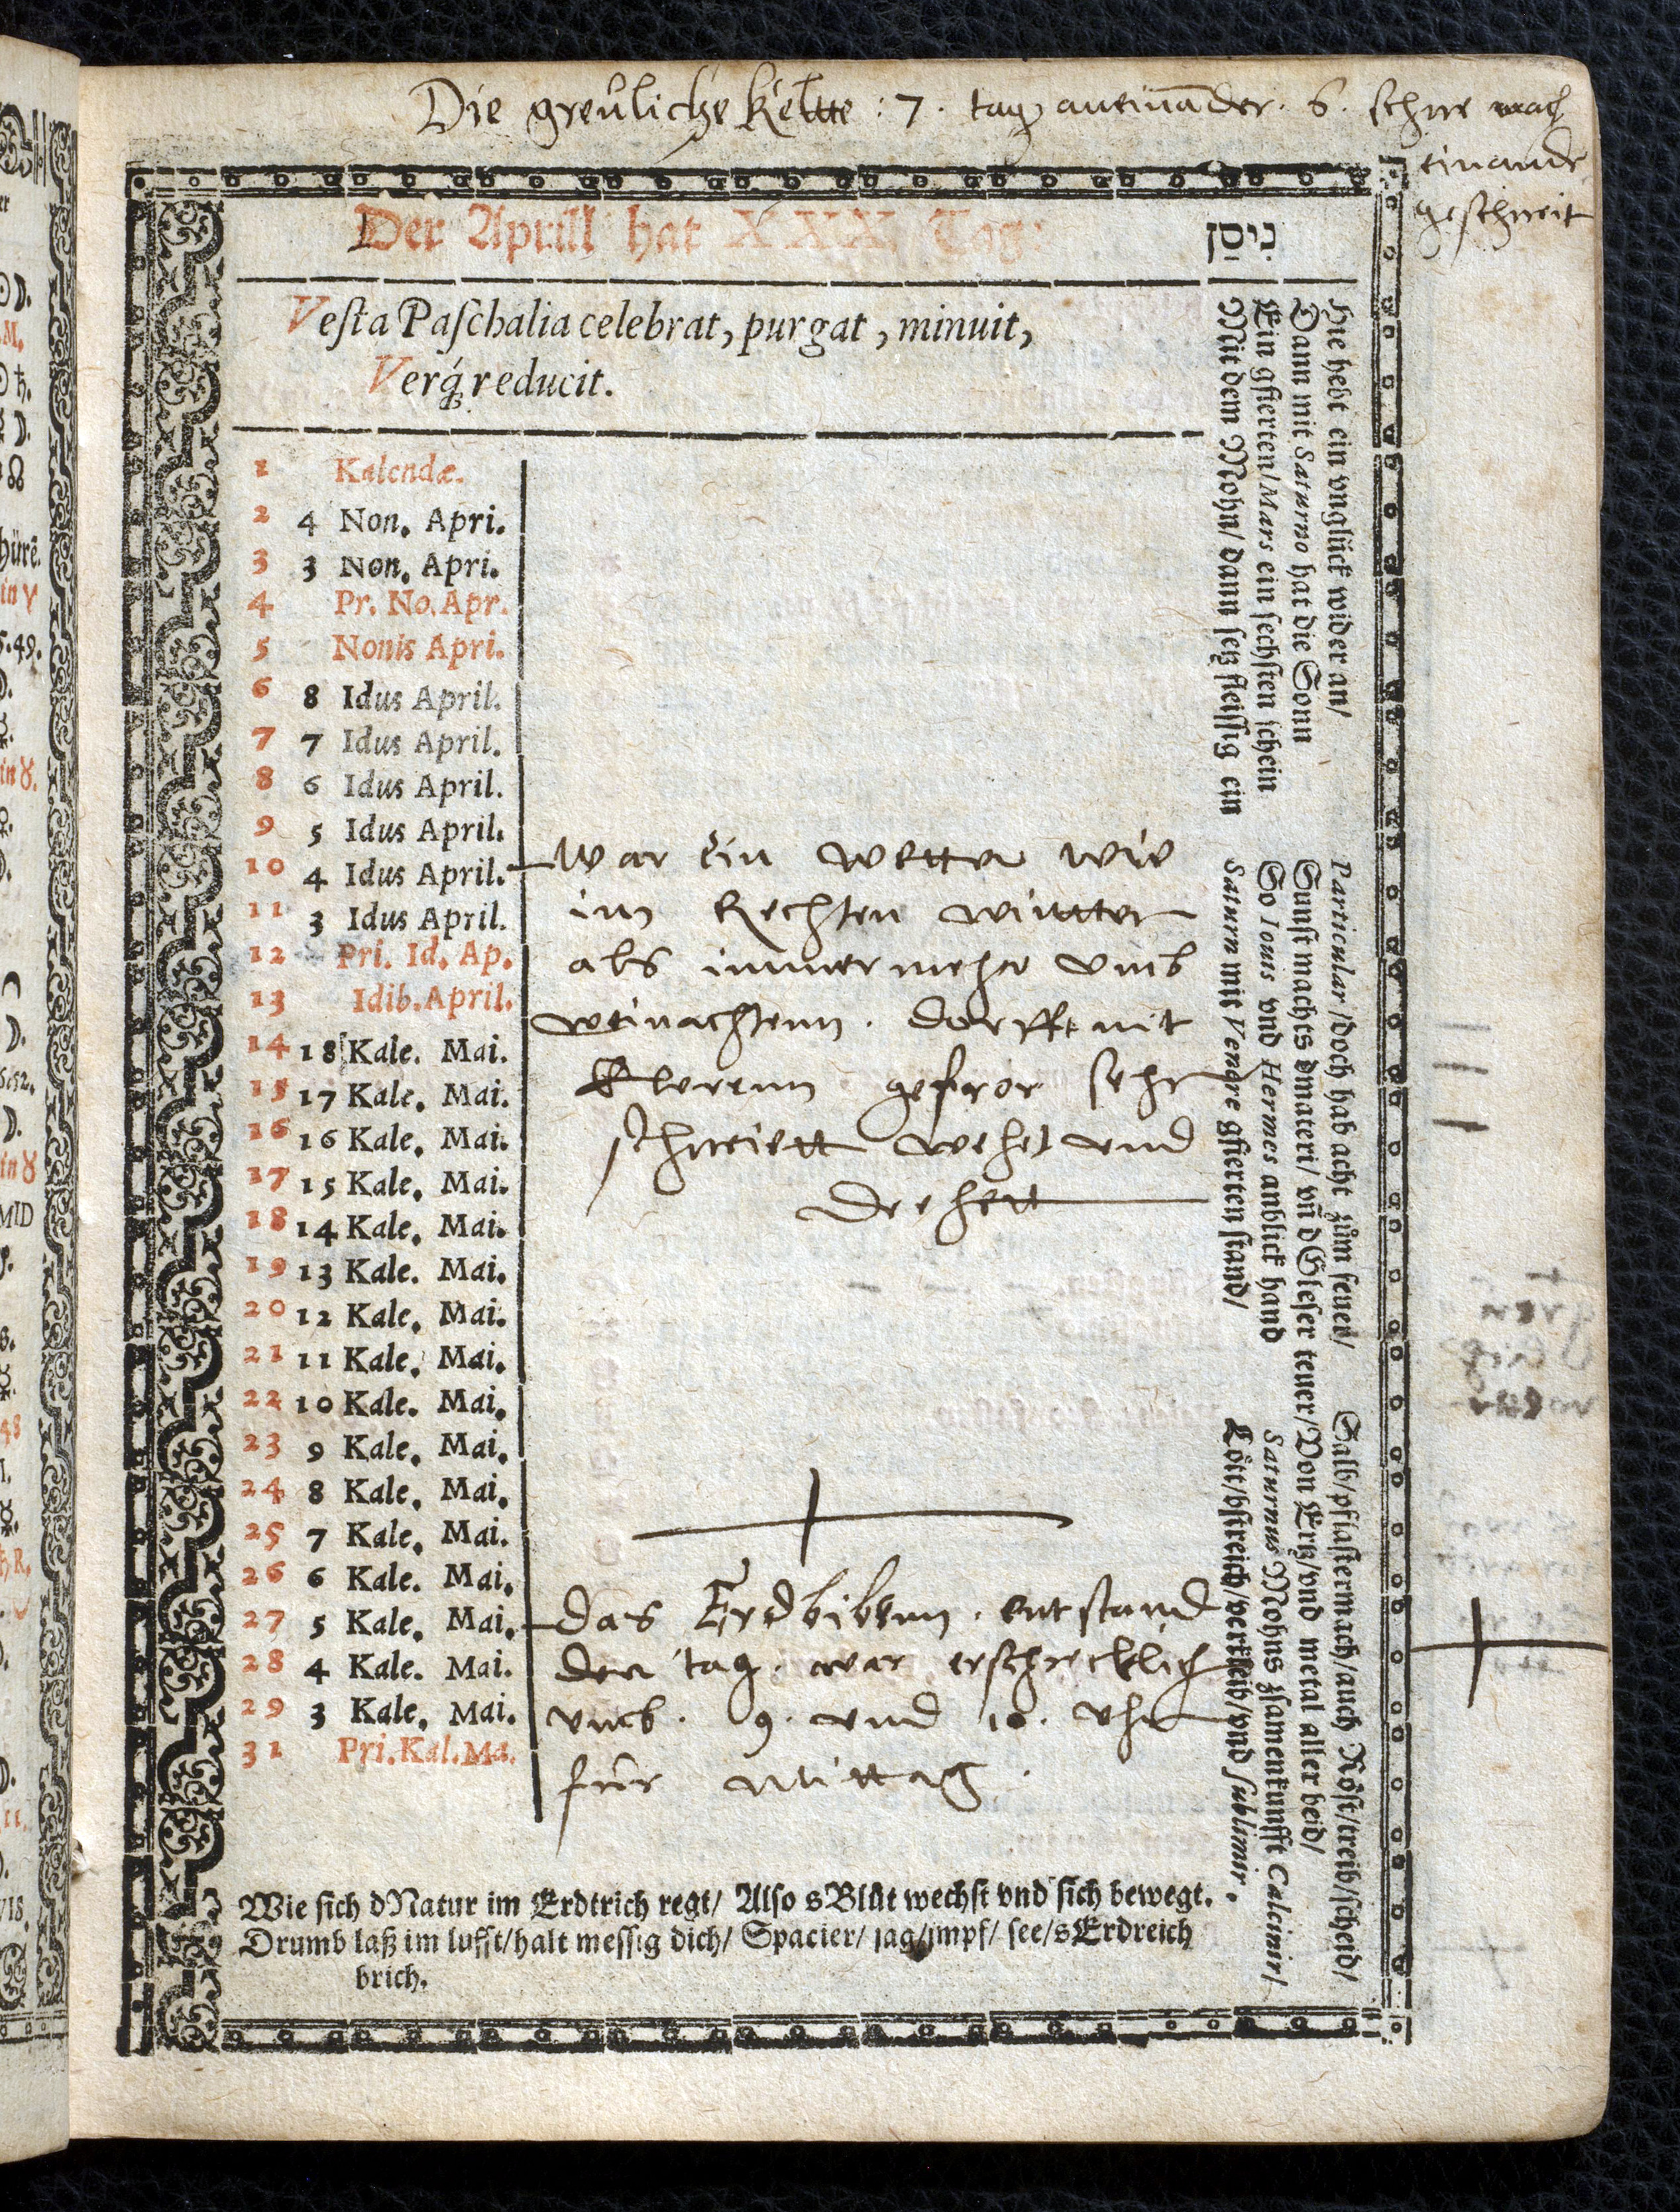 Die greuliche Keltte : 7 . tag aneinander . 6 . schne nach
einander
geschneit
Der Aprill hat XXX. Tag:
נִיסַן
Vesta Paschalia celebrat, purgat, minuit,
Verq́; reducit.
1 Kalendæ.
2 4 Non. Apri.
3 3 Non. Apri.
4 Pr. No. Apr.
5 Nonis Apri.
6 8 Idus April.
7 7 Idus April.
8 6 Idus April.
9 5 Idus April.
10 4 Idus April.
11 3 Idus April.
12 Pri. Id. Ap.
13 Idib. April.
14 18 Kale. Mai.
15 17 Kale. Mai.
16 16 Kale. Mai.
17 15 Kale. Mai.
18 14 Kale. Mai.
19 13 Kale. Mai.
20 12 Kale. Mai.
21 11 Kale. Mai.
22 10 Kale. Mai.
23 9 Kale. Mai.
24 8 Kale. Mai.
25 7 Kale. Mai.
26 6 Kale. Mai.
27 5 Kale. Mai.
28 4 Kale. Mai.
29 3 Kale. Mai.
31 Pri. Kal. Ma.
War ein wetter wie
im Rechten wintter
als immer mehr umb
weinachtenn . dorfft nit
gefror sehr
schneiett wehet und
Das Erdbibenn . entstand
den tag . war erschrecklich
umb . 9 . und 10 . Uhr
für mittag .
Hie hebt ein vnglück wider an/
Dann mit Saturno hat die Sonn
Ein gfierten/ Mars ein sechsten schein
Mit dem Mohn/ dann setz fleissig ein
Particular/ doch hab acht zům feuer/
Sunst machts dmateri/ vñ dGleser teuer/
So Iouis vnd Hermes anblick hand
Saturn mit Venere gfierten stand/
Salb/ pflastermach/ auch Röst/ treib/ scheid/
Von Ertz/ vnd metal aller beid/
Saturnus Mohns zsamenkunfft Calcinir/
Löt/ bstreich/ verkleib/ vnd sublimir.
Wie sich dNatur im Erdtrich regt/ Also sBlůt wechst vnd sich bewegt.
Drumb laß im lufft/ halt messig dich/ Spacier/ jag/ impf/ see/ sErdreich
brich.